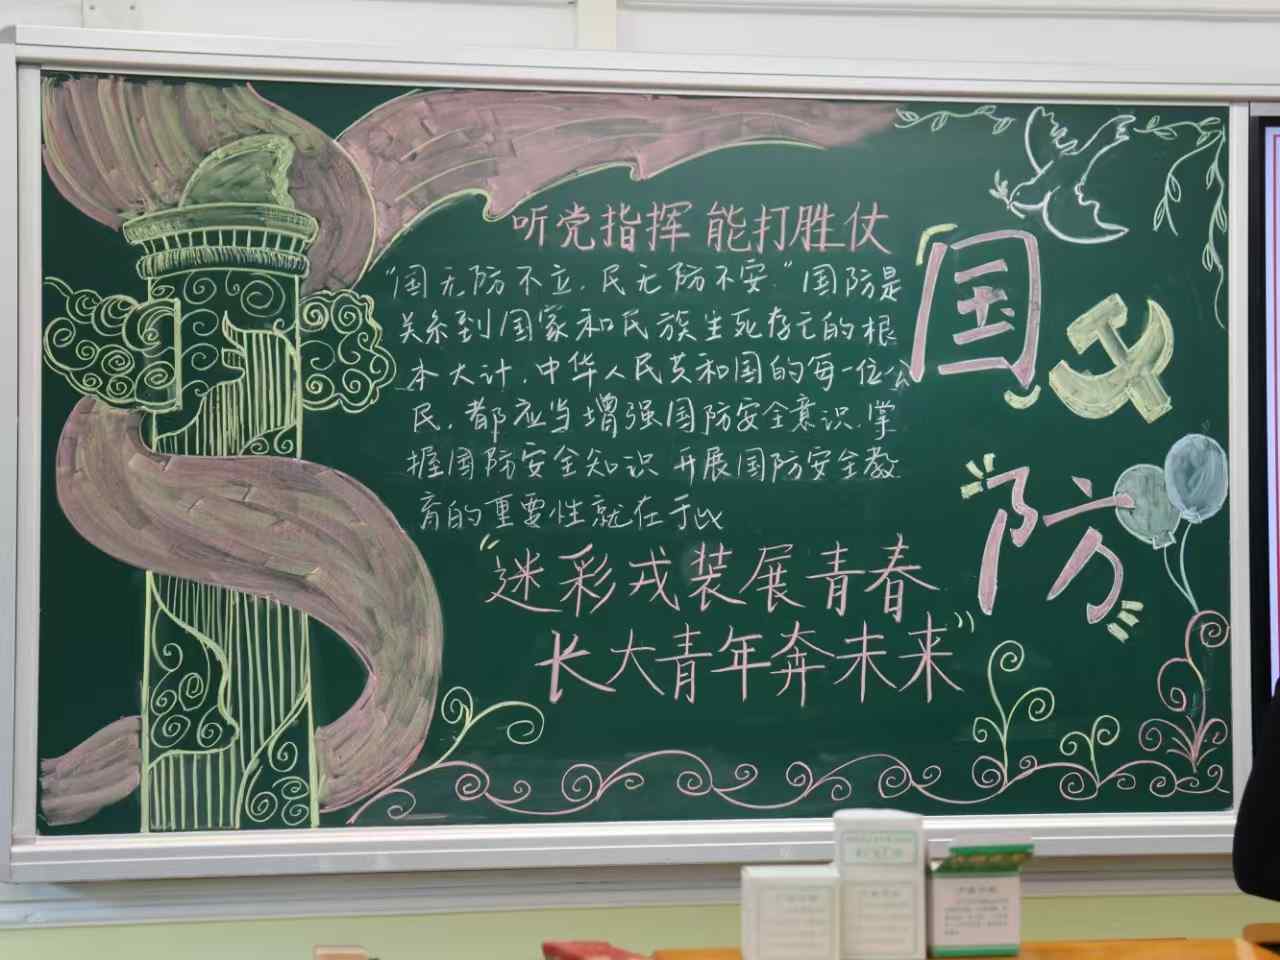 听党指挥 能打胜仗
“国无防不立，民无防不安”国防是
关系到国家和民族生死存亡的根
本大计，中华人民共和国的每一位公
民，都应当增强国防安全意识，掌
握国防安全知识 开展国防安全教
育的重要性就在于此
“迷彩戎装展青春
长大青年奔未来”
国
防